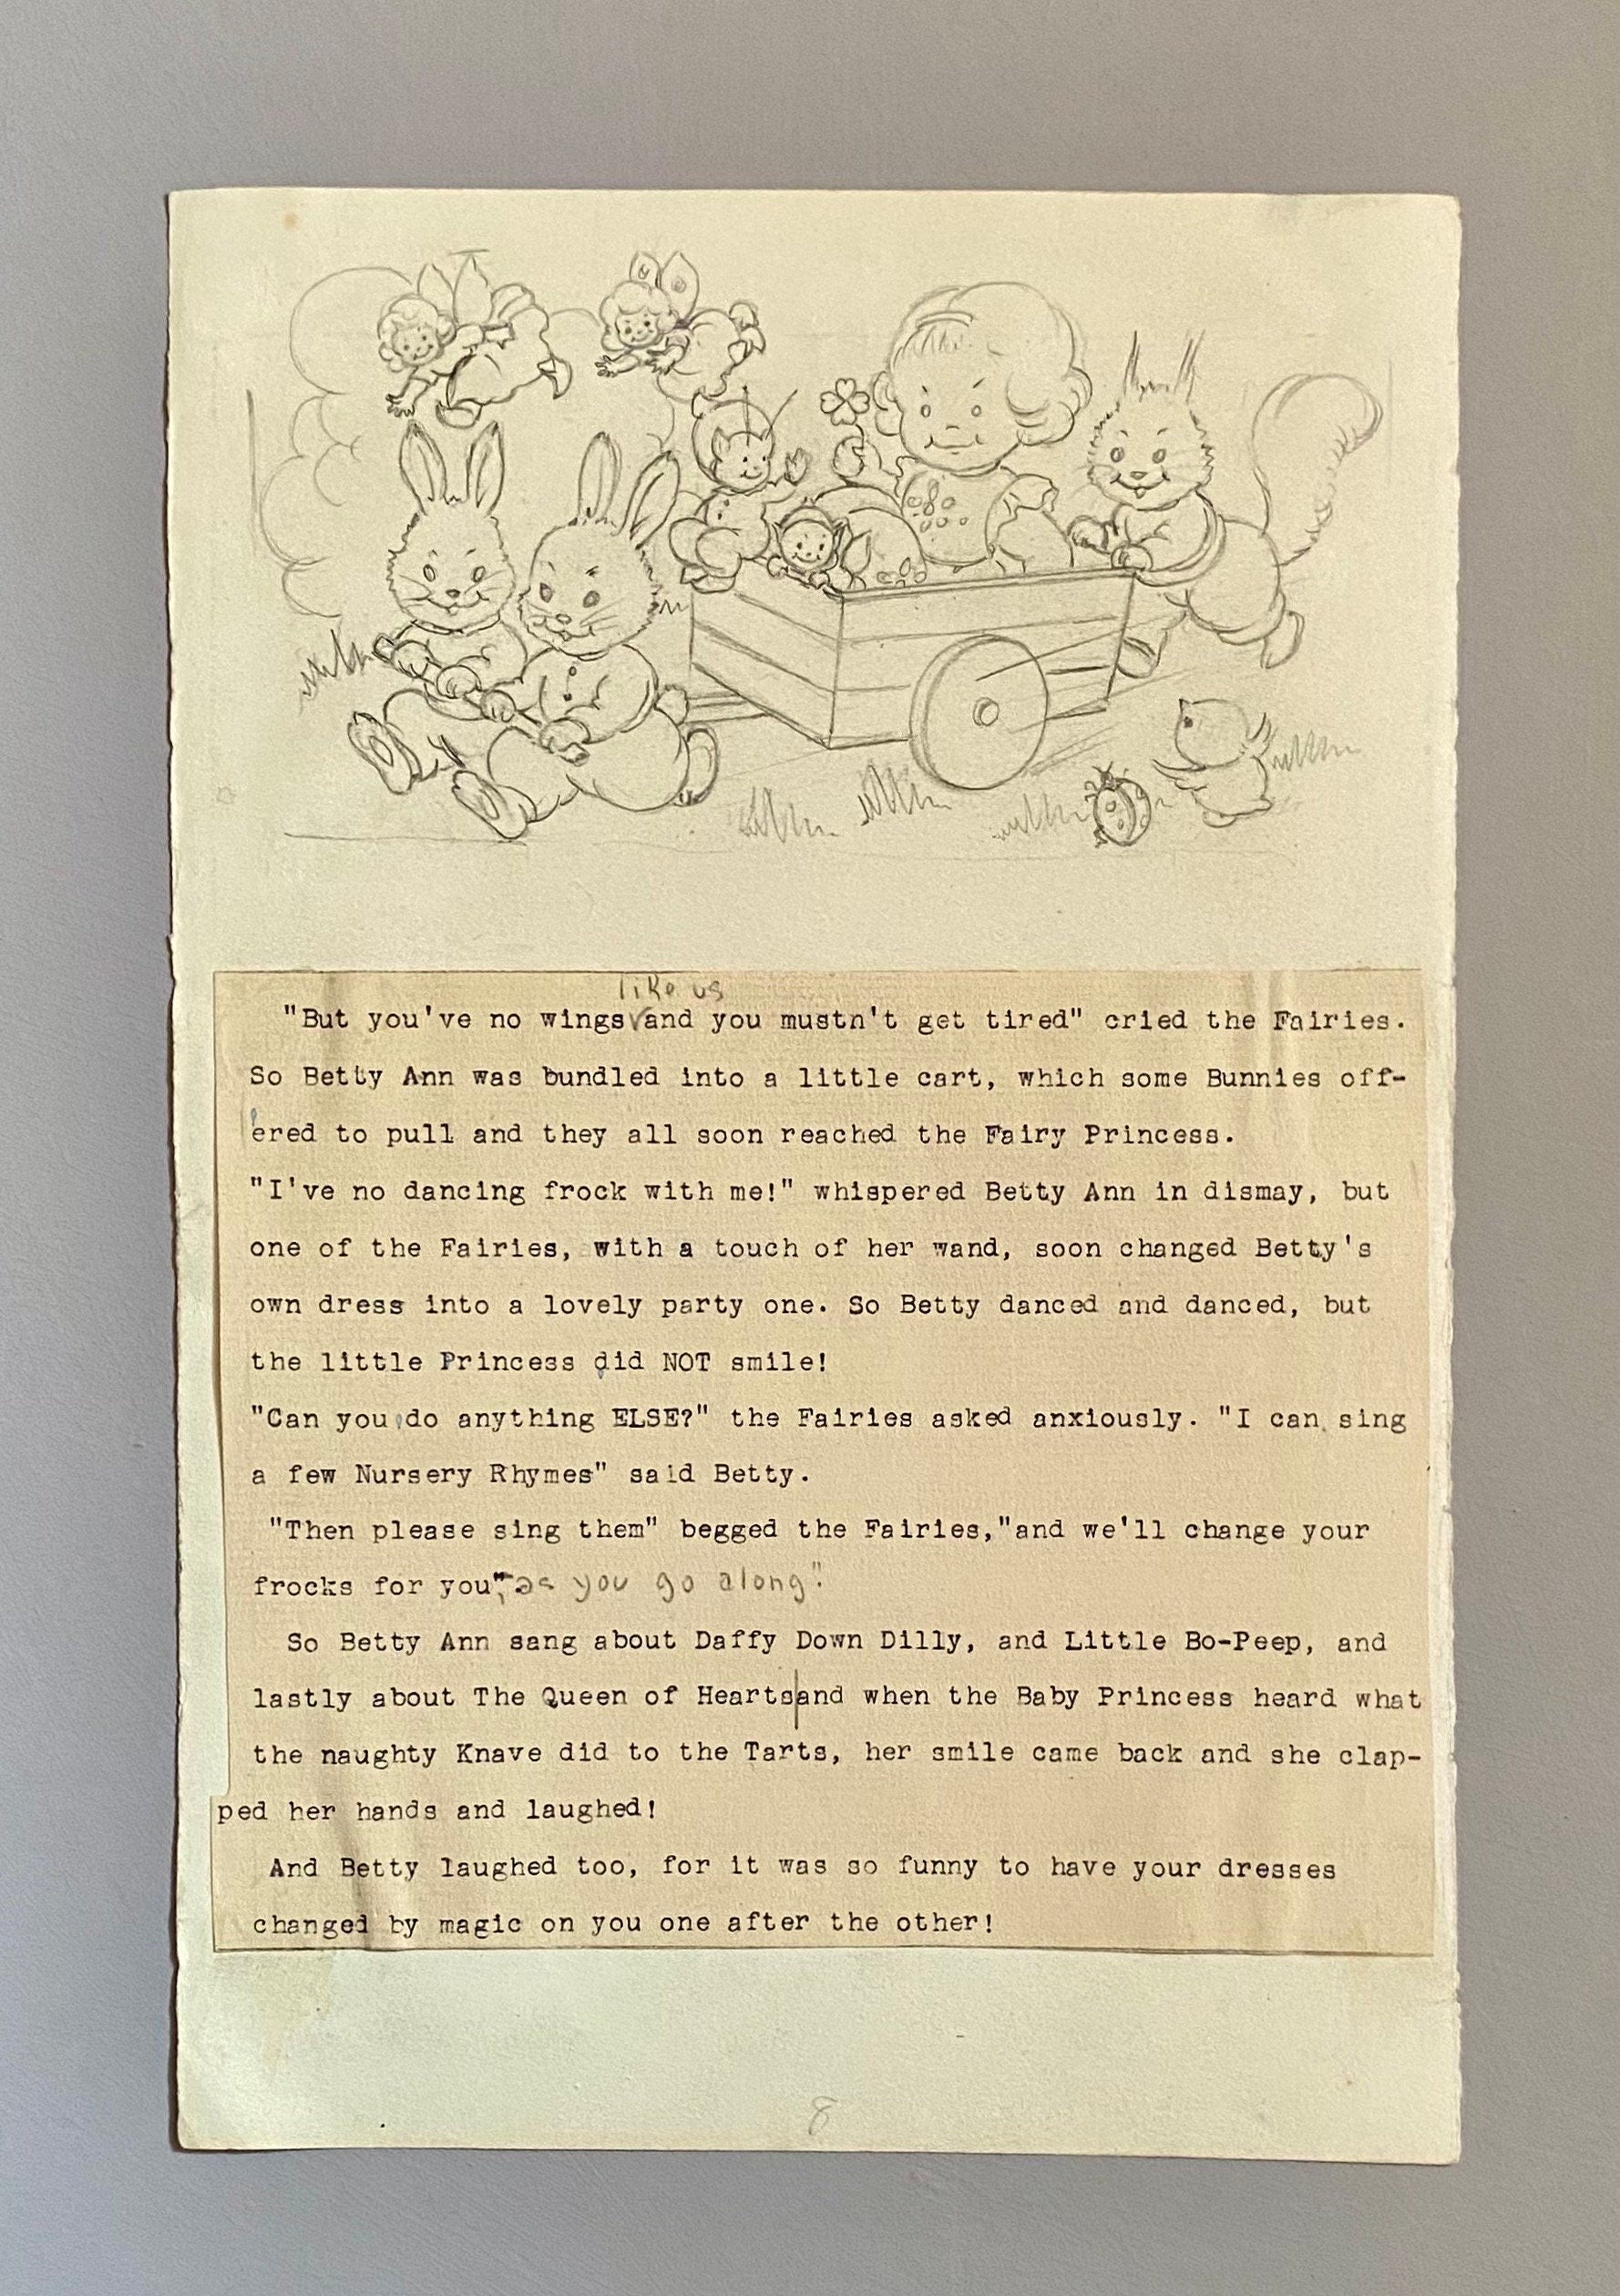 like us
"But you've no wings and you mustn't get tired" cried the Fairies.
So Betty Ann was bundled into a little cart, which some Bunnies off-
ered to pull and they all soon reached the Fairy Princess.
"I've no dancing frock with me!" whispered Betty Ann in dismay, but
one of the Fairies, with a touch of her wand, soon changed Betty's
own dress into a lovely party one. So Betty danced and danced, but
the little Princess did NOT smile!
"Can you do anything ELSE?" the Fairies asked anxiously. "I can sing
a few Nursery Rhymes" said Betty.
"Then please sing them" begged the Fairies,"and we'll change your
frocks for you", as you go along".
So Betty Ann sang about Daffy Down Dilly, and Little Bo-Peep, and
lastly about The Queen of Hearts|and when the Baby Princess heard what
the naughty Knave did to the Tarts, her smile came back and she clap-
ped her hands and laughed!
And Betty laughed too, for it was so funny to have your dresses
changed by magic on you one after the other!
8